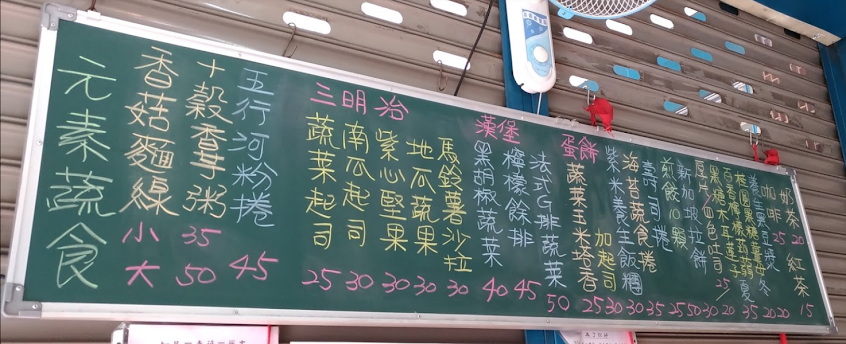 元素蔬食
香菇麵線
小 35
大 50
十穀香芋粥
五行河粉捲
45
三明治
蔬菜起司
25
南瓜起司
30
紫心堅果
30
地瓜蔬果
30
馬鈴薯沙拉
30
漢堡
黑胡椒蔬菜
40
檸檬餘排
45
法式G排蔬菜
50
蛋餅
蔬菜玉米塔香
25
加起司
30
紫米養生飯糰
30
海苔蔬食捲
35
壽司捲
25
煎餃10顆
50
新加坡拉餅
30
厚片/四色吐司
20
25
咖啡
25
奶茶
20
紅茶
15